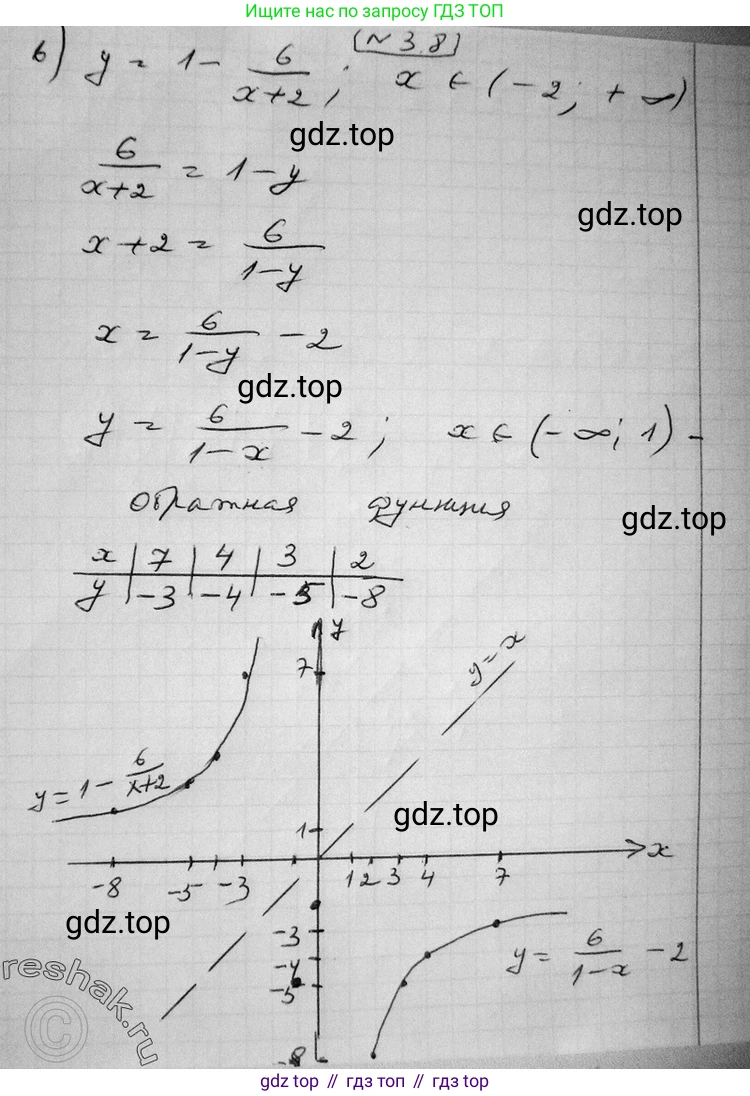 Ищите нас по запросу ГДЗ ТОП
[№ 3.8]
б) y = 1 - 6/(x+2); x ∈ (-2; +∞)
gdz.top
6/(x+2) = 1 - y
gdz.top
x + 2 = 6/(1-y)
x = 6/(1-y) - 2
gdz.top
y = 6/(1-x) - 2; x ∈ (-∞; 1) -
обратная функция
gdz.top
x | 7 | 4 | 3 | 2
y | -3 | -4 | -5 | -8
y
7
y = x
y = 1 - 6/(x+2)
1
gdz.top
x
-8 -5 -3 1 2 3 4 7
gdz.top
-3
-4
-5
y = 6/(1-x) - 2
-8
reshak.ru
©
gdz top // гдз топ // gdz top